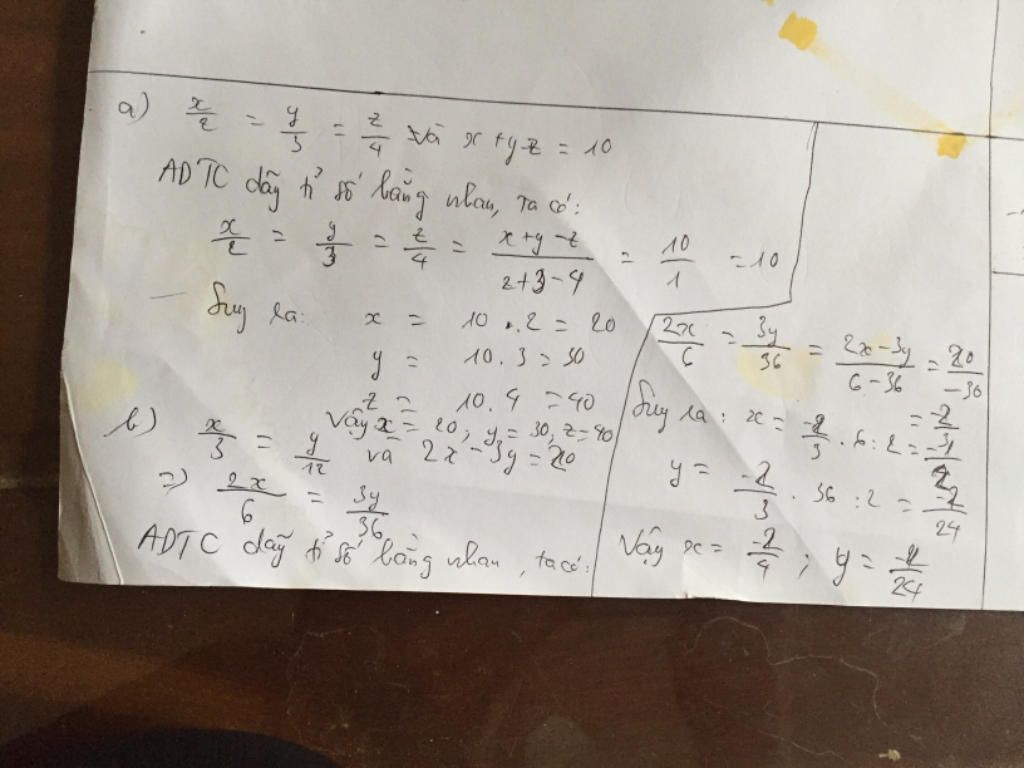 a) x/2 = y/3 = z/4 và x + y - z = 10
ADTC dãy tỉ số bằng nhau, ta có:
x/2 = y/3 = z/4 = (x + y - z)/(2 + 3 - 4) = 10/1 = 10
Suy ra: x = 10 . 2 = 20
y = 10 . 3 = 30
z = 10 . 4 = 40
Vậy x = 20; y = 30, z = 40
b) x/3 = y/12 và 2x - 3y = 20
=> 2x/6 = 3y/36
ADTC dãy tỉ số bằng nhau, ta có:
2x/6 = 3y/36 = (2x - 3y)/(6 - 36) = 20/-30
= -2/3
Suy ra: x = -2/3 . 6 : 2 =
y = -2/3 . 36 : 2 = -2/24
Vậy x = -2/4 ; y = -2/24